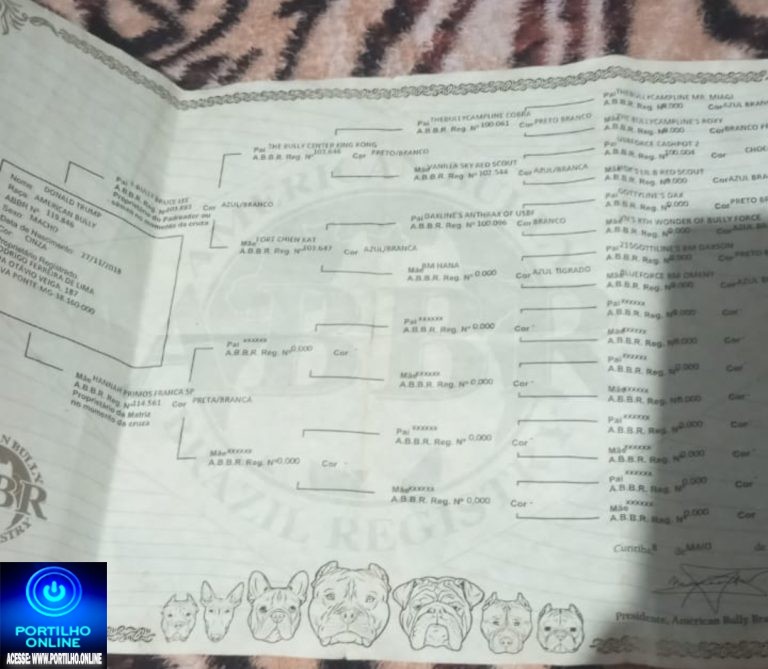 Nome DONALD TRUMP
Raça AMERICAN BULLY
ABBR Nº 119.846
Sexo MACHO
Data de Nascimento 27/11/2018
Cor CINZA
Proprietário Registrado
RODRIGO FERREIRA DE LIMA
OTÁVIO VEIGA, 187
NOVA PONTE-MG-38.160-000
Pai BRUCE LEE
A.B.B.R. Reg. Nº Cor AZUL/BRANCO
Proprietário do Padreador ou
sêmen no momento da cruza
Mãe HANNAH PRIMOS FRANCA SP
A.B.B.R. Reg. Nº 114.561 Cor PRETA/BRANCA
Proprietário da Matriz
no momento da cruza
Pai THE BULLY CENTER KING KONG
A.B.B.R. Reg. Nº 101.646 Cor PRETO/BRANCO
Mãe FORT CHIEN KAT
A.B.B.R. Reg. Nº 101.647 Cor AZUL/BRANCA
Pai xxxxxx
A.B.B.R. Reg. Nº 0.000 Cor -
Mãe xxxxxx
A.B.B.R. Reg. Nº 0.000 Cor -
Pai THEBULLYCAMPLINE COBRA
A.B.B.R. Reg. Nº 100.061 Cor PRETO BRANCO
Mãe VANILLA SKY RED SCOUT
A.B.B.R. Reg. Nº 102.544 Cor AZUL/BRANCA
Pai DAXLINE'S ANTHRAX OF USBF
A.B.B.R. Reg. Nº 100.096 Cor BRANCO
Mãe BM HANA
A.B.B.R. Reg. Nº 0.000 Cor AZUL TIGRADO
Pai xxxxxx
A.B.B.R. Reg. Nº 0.000 Cor -
Mãe xxxxxx
A.B.B.R. Reg. Nº 0.000 Cor -
Pai xxxxxx
A.B.B.R. Reg. Nº 0.000 Cor -
Mãe xxxxxx
A.B.B.R. Reg. Nº 0.000 Cor -
Pai THEBULLYCAMPLINE MR. MIAGI
A.B.B.R. Reg. Nº 0.000 Cor AZUL BRAN
Mãe THE BULLYCAMPLINE'S ROXY
A.B.B.R. Reg. Nº 0.000 Cor BRANCO
Pai USBFORCE CASHPOT 2
A.B.B.R. Reg. Nº 100.004 Cor CHOC
Mãe LIL B RED SCOUT
A.B.B.R. Reg. Nº 0.000 Cor AZUL BRA
Pai GOTTYLINE'S DAX
A.B.B.R. Reg. Nº 0.000 Cor PRETO B
Mãe 8TH WONDER OF BULLY FORCE
A.B.B.R. Reg. Nº 0.000 Cor
Pai 21SGOTTILINE'S BM DAWSON
A.B.B.R. Reg. Nº 0.000 Cor PRETO
Mãe BLUEFORCE BM
A.B.B.R. Reg. Nº 0.000 Cor AZUL
Pai xxxxxx
A.B.B.R. Reg. Nº 0.000 Cor
Mãe xxxxxx
A.B.B.R. Reg. Nº 0.000 Cor
Pai xxxxxx
A.B.B.R. Reg. Nº 0.000 Cor
Mãe xxxxxx
A.B.B.R. Reg. Nº 0.000 Cor
Pai xxxxxx
A.B.B.R. Reg. Nº 0.000 Cor
Mãe xxxxxx
A.B.B.R. Reg. Nº 0.000 Cor
Pai xxxxxx
A.B.B.R. Reg. Nº 0.000 Cor
Mãe xxxxxx
A.B.B.R. Reg. Nº 0.000 Cor
Curitiba 8 de MAIO
Presidente, American Bully Bra
AN BULLY
BR
STRY
BRAZIL REGISTRY
PORTILHO
ONLINE
ACESSE: WWW.PORTILHO.ONLINE